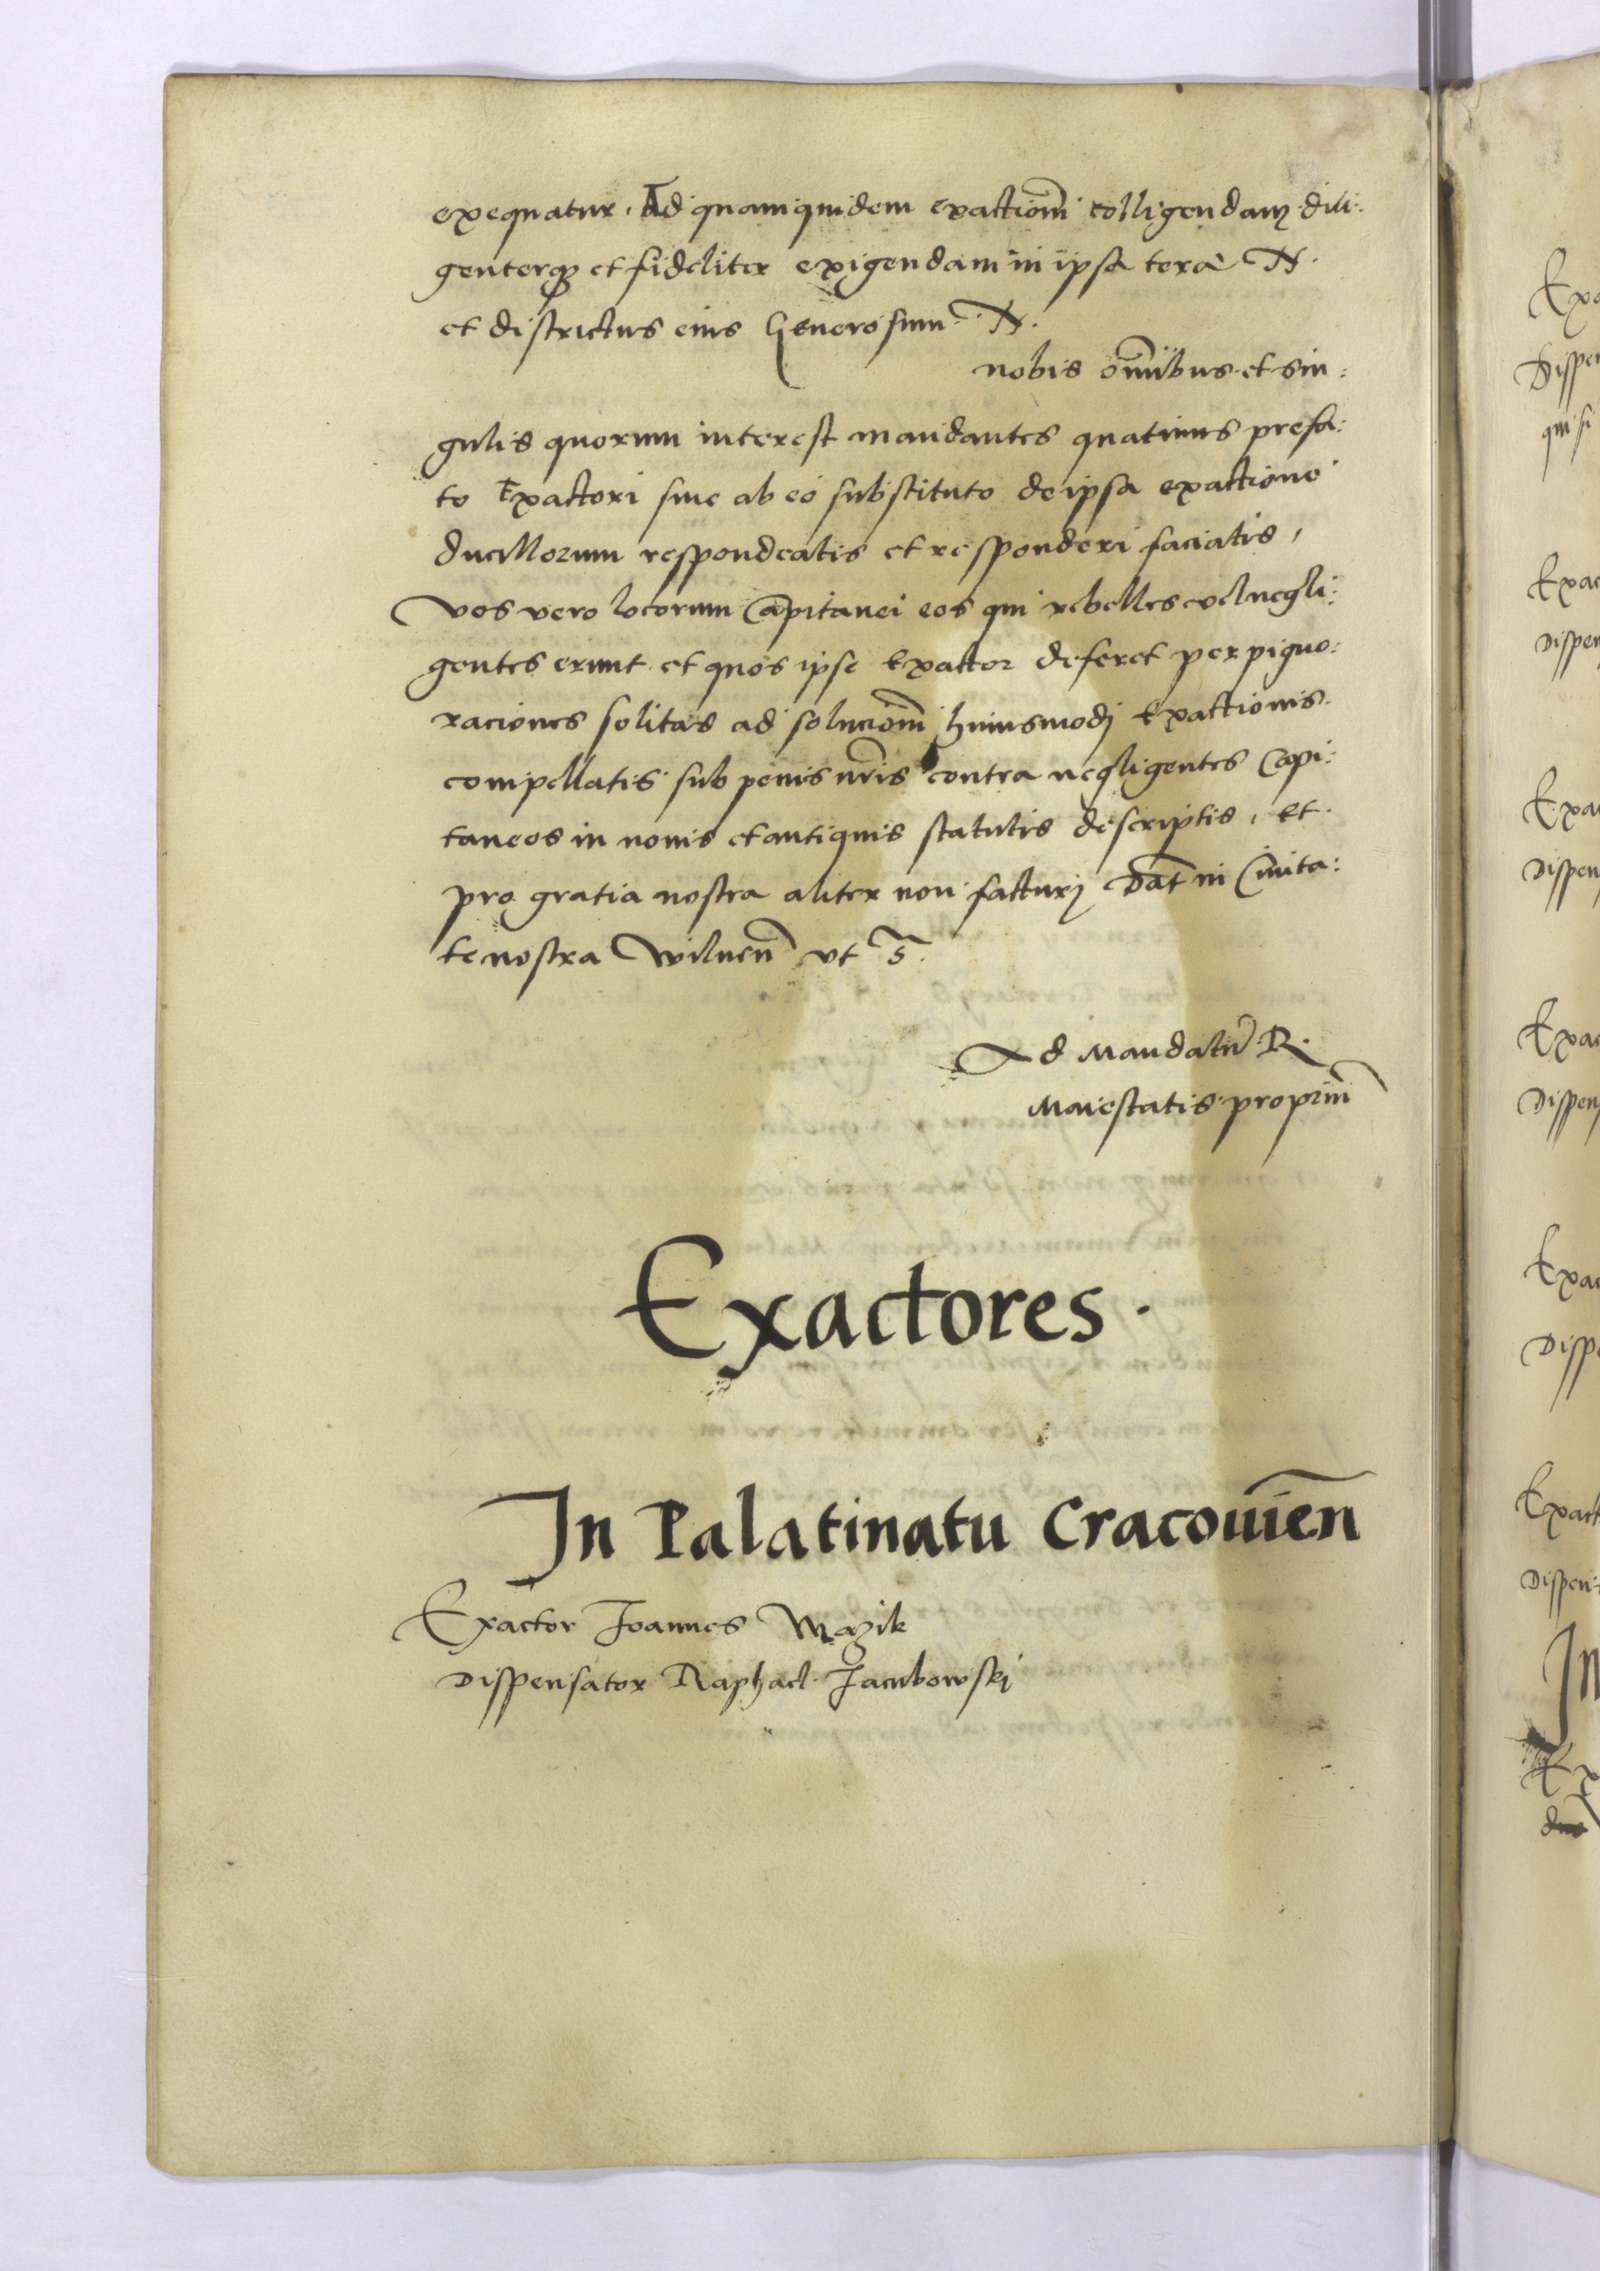 exequatur. Ad quamquidem exactiom̄ colligendam dili:
genterq et fideliter exigendam in ipsa tera N.
et districtus eius Generosum N.
nobis om̄ibus et sin:
gulis quorum interest mandantes quatinus prefa:
to Exactori siue ab eo substituto de ipsa exactione
ducillorum respondeatis et responderi faciatis,
Vos vero locorum Capitanei eos qui rebelles vel negli:
gentes erunt et quos ipse Exactor deferet per pigno:
raciones solitas ad soluciom̄ huiusmodi Exactionis
compellatis sub penis nr̄is contra negligentes Capi:
taneos in nouis et antiquis statutis descriptis, Et
pro gratia nostra aliter non facturi Dat̄ in Ciuita:
te nostra Wilnen̄ vt s̄.
Ad Mandatu᷄ R.
Maiestatis propriu᷄
Exactores.
In Palatinatu Cracouien̄
Exactor Joannes Mazik
Dispensator Raphael Jacubowski
Exa
Dispen
qui si
Exac
Dispen
Exa
Dispen
Exac
Dispen
Exac
Disp
Exact
Dispen
In
Ex